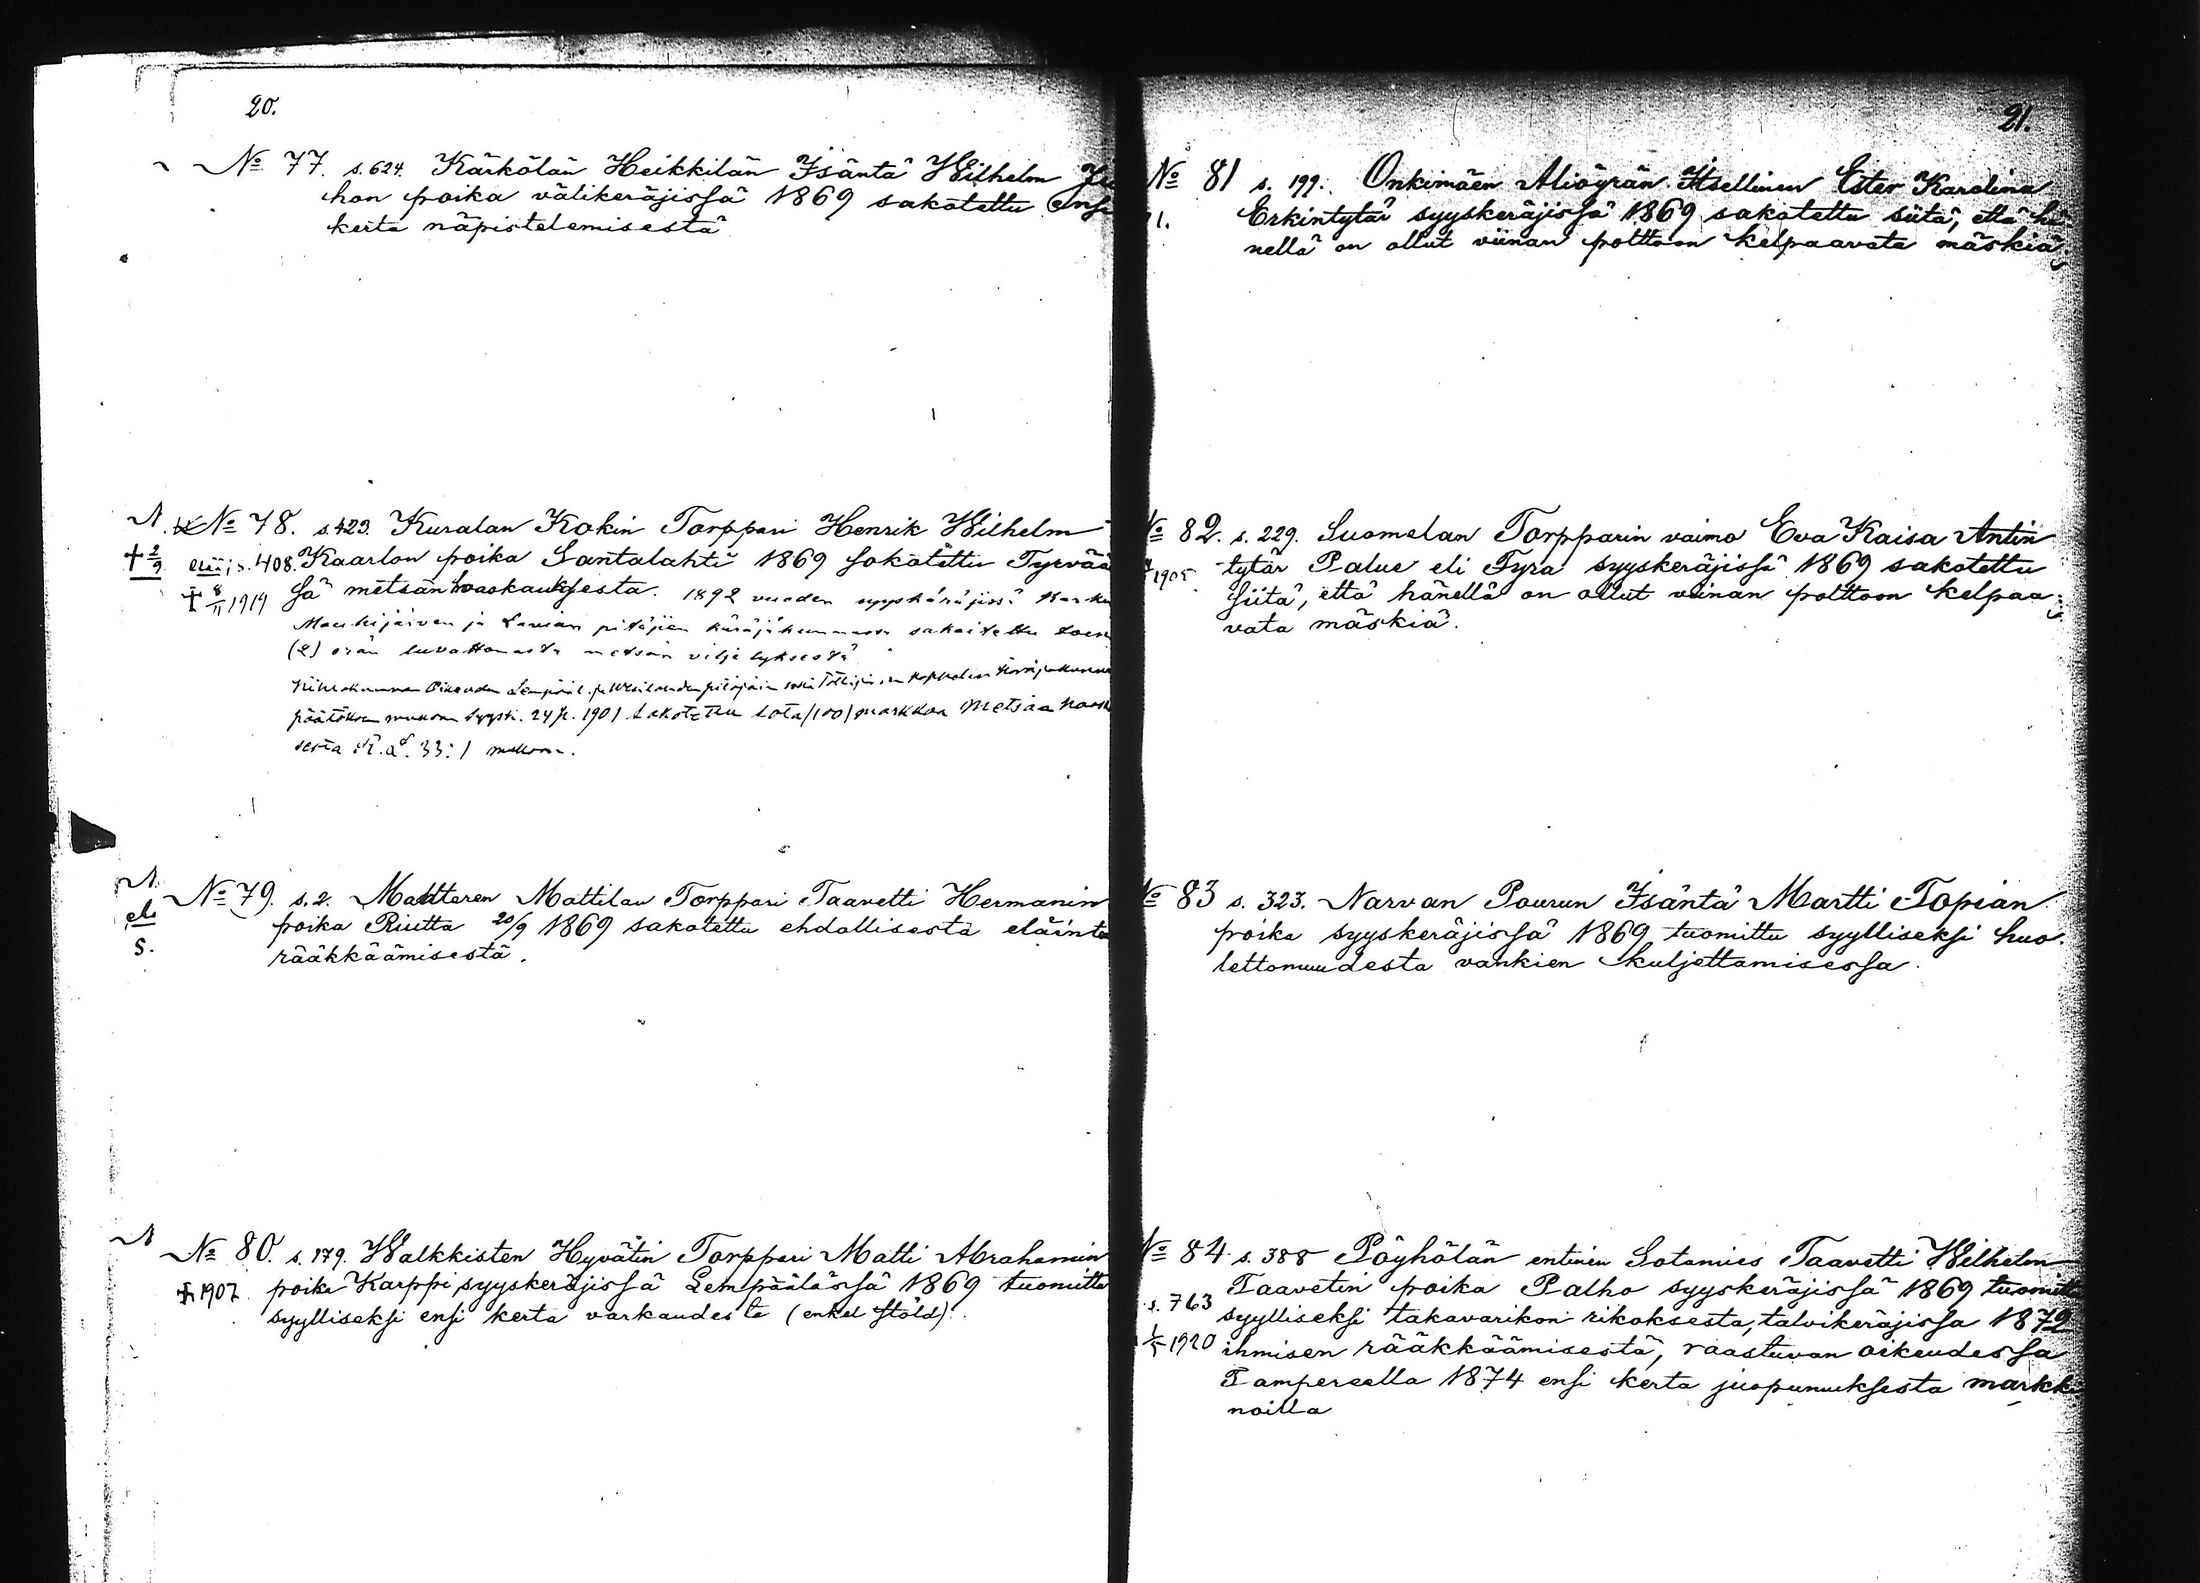 20.
№ 77. s. 624. Kärkölän Heikkilän Isäntä Wilhelm Ju
hon poika välikeräjissä 1869 sakotettu ensi
kerta näpistelemisestä
N. № 78. s. 423. Kuralan Kokin Torppari Henrik Wilhelm
+ 2/9 elää; s. 408. Kaarlon poika Santalahti 1869 sakotettu Tyrvää
+ 8/11 1919 sä metsän haaskauksesta. 1892 vuoden syyskäräjissä
Mouhijärven ja Lavian pitäjien käräjäkunnassa sakoitettu
(2) luvattomasta metsän viljelyksestä
Kihlakunnan Oikeuden
päätöksen mukaan syysk. 24 p. 1901 sakotettu sata (100) markkaa Metsän haask
sesta R.L. 33:1 mukaan.
N. № 79. s. 2. Mattaren Mattilan Torppari Taavetti Hermanin
el. poika Riutta 20/9 1869 sakotettu ehdallisesta eläinte
s. rääkkäämisestä.
N № 80. s. 179. Walkkisten Hyvätin Torppari Matti Abrahamin
+ 1907. poika Karppi syyskeräjissä Lempäälässä 1869 tuomittu
syylliseksi ensi kerta varkaudesta (enkel stöld).
21.
№ 81 s. 199. Onkimäen Aliöyrän Itsellinen Ester Karolina
Erkintytär syyskeräjissä 1869 sakotettu siitä, että hä
nellä on ollut viinan polttoon kelpaavata mäskiä
№ 82. s. 229. Suomelan Torpparin vaimo Eva Kaisa Antin
1905 tytär Palue eli Fyra syyskeräjissä 1869 sakotettu
siitä, että hänellä on ollut viinan polttoon kelpaa
vata mäskiä.
№ 83 s. 323. Narvan Pourun Isäntä Martti Topian
poika syyskeräjissä 1869 tuomittu syylliseksi huo
lettomuudesta vankien kuljettamisessa.
№ 84 s. 388 Pöyhölän entinen Sotamies Taavetti Wilhelm
Taavetin poika Palho syyskeräjissä 1869 tuomittu
s. 763 syylliseksi takavarikon rikoksesta, talvikeräjissa 1872
1920 ihmisen rääkkäämisestä, raastuvan oikeudessa
Tampereella 1874 ensi kerta juopumuksesta markk
noilla